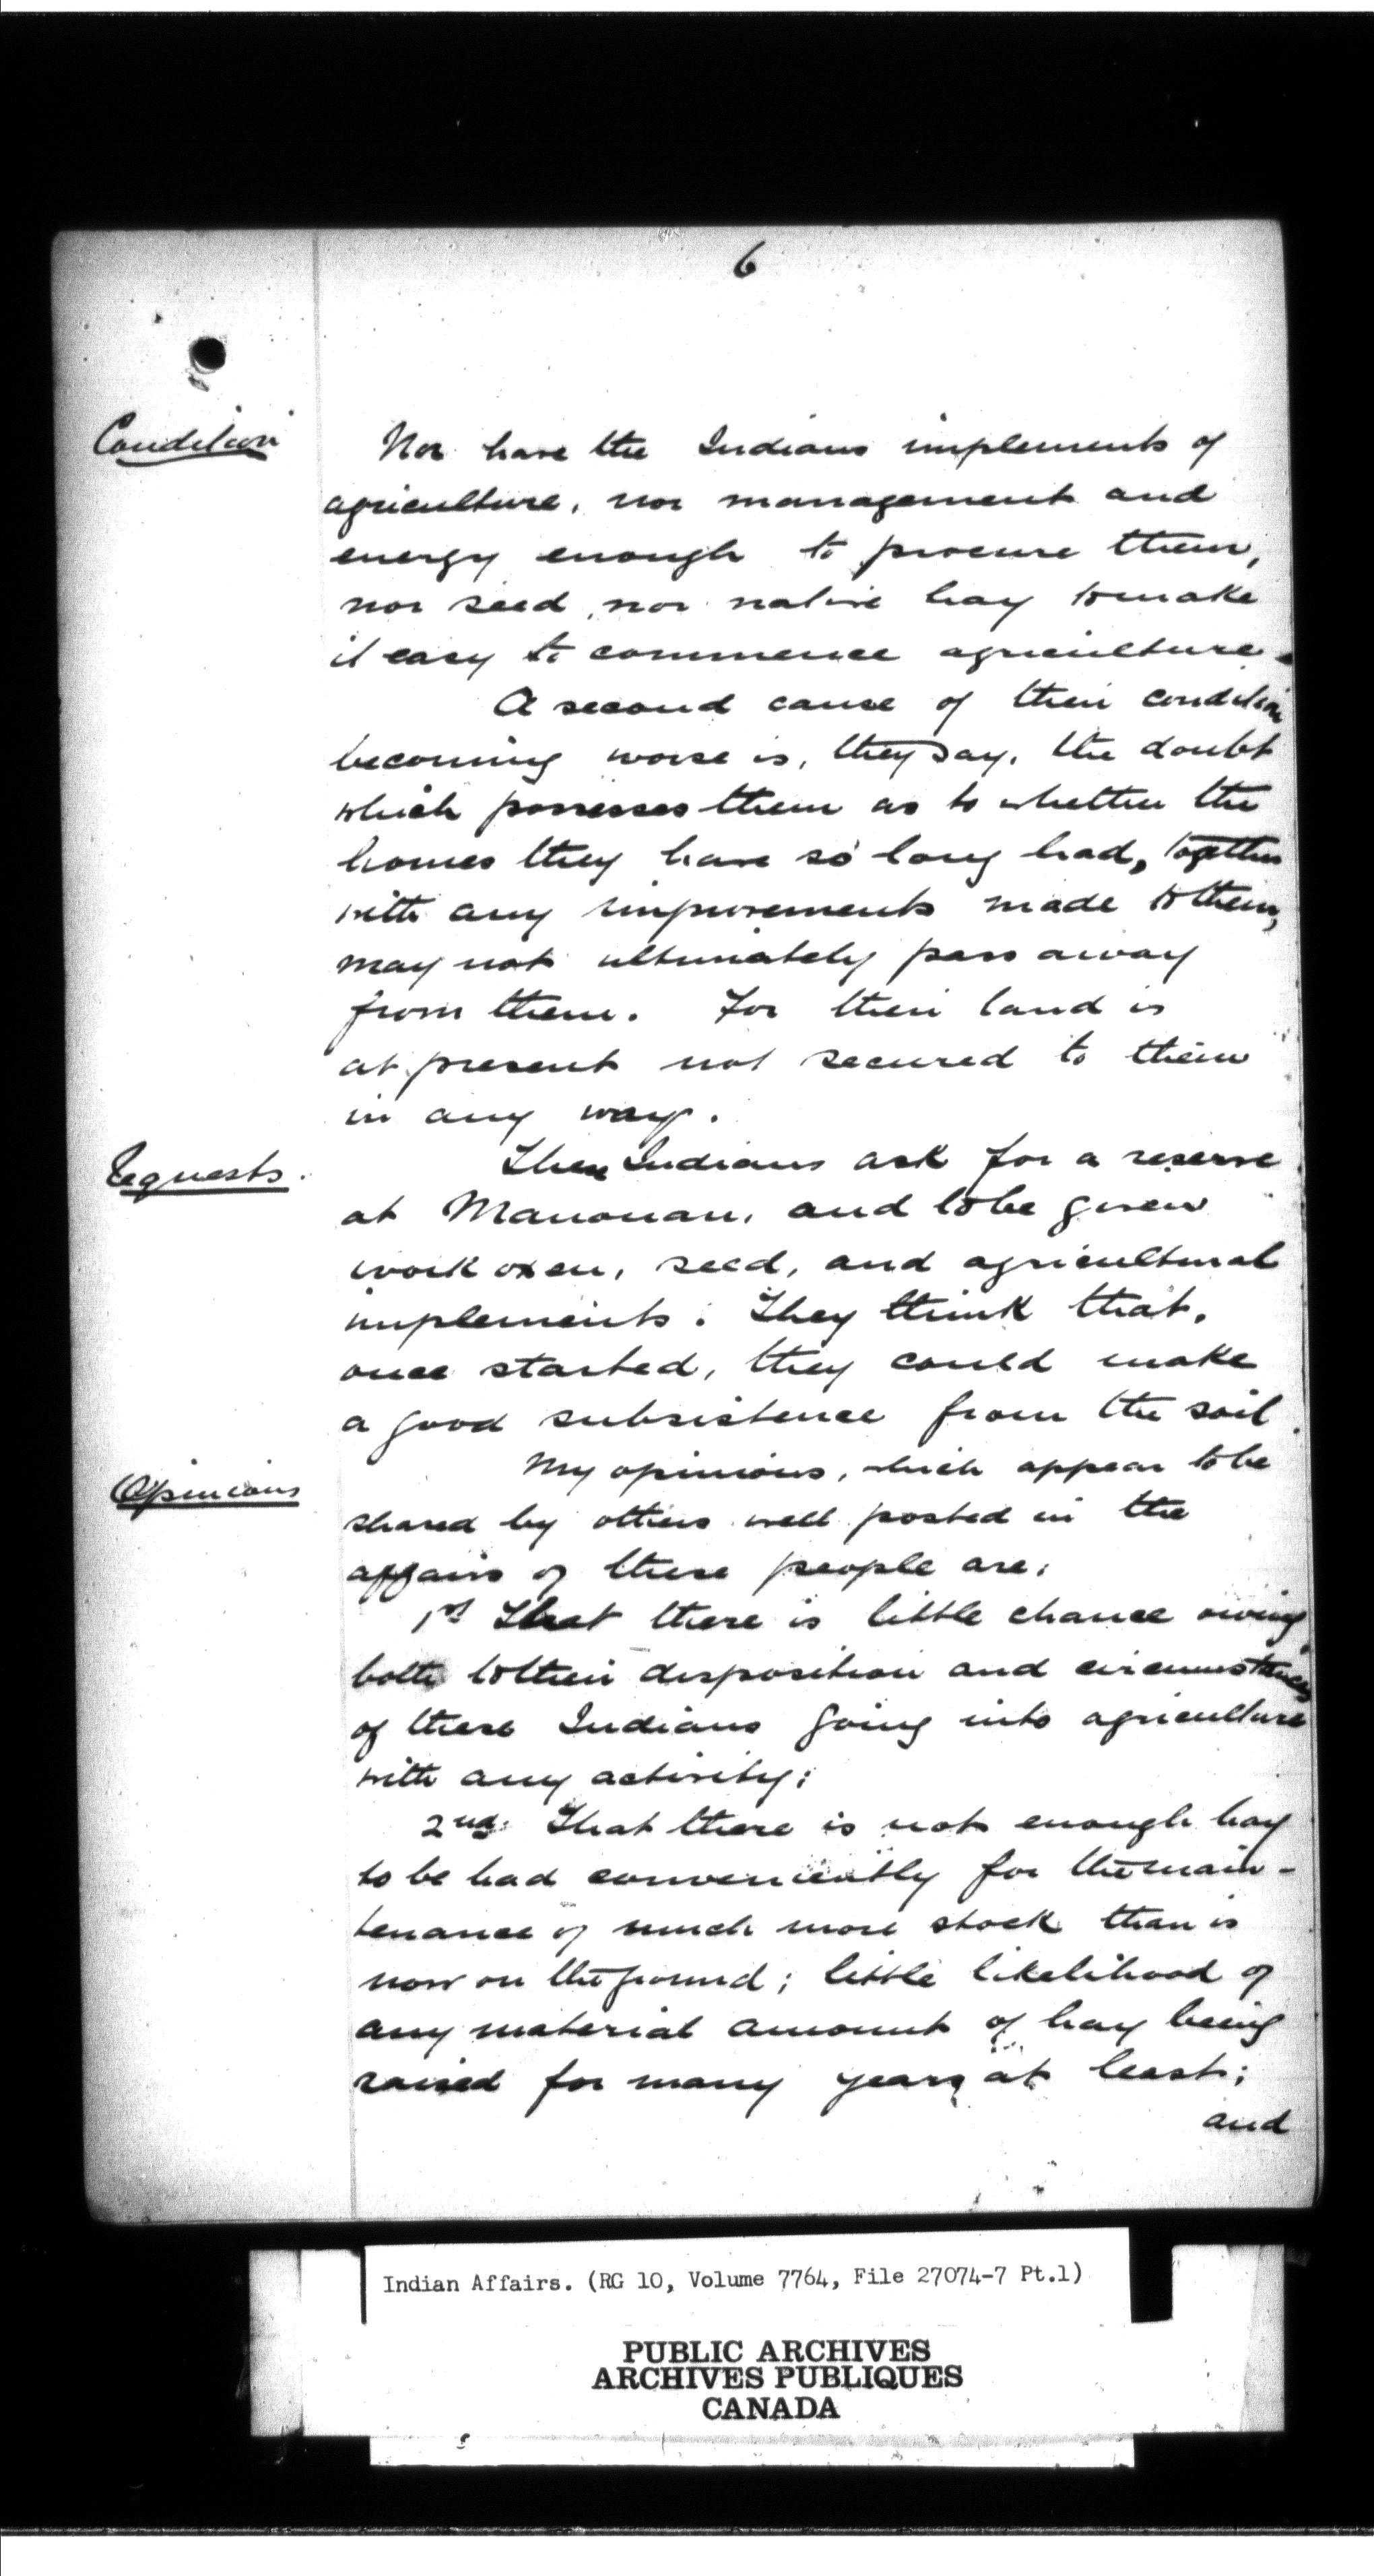 6
Condition
Nor have the Indians implements of
agriculture, nor management and
energy enough to procure them,
nor seed, nor native hay to make
it easy to commence agriculture.
A second cause of their condition
becoming worse is, they say, the doubt
which possesses them as to whether the
homes they have so long had, together
with any improvements made to them,
may not ultimately pass away
from them. For their land is
at present not secured to them
in any way.
Requests.
These Indians ask for a reserve
at Manouan, and to be given
work oxen, seed, and agricultural
implements. They think that,
once started, they could make
a good subsistence from the soil.
Opinions
My opinions, which appear to be
shared by others well posted in the
affairs of these people are:
1st That there is little chance owing
both to their disposition and circumstances
of these Indians going into agriculture
with any activity;
2nd. That there is not enough hay
to be had conveniently for the main-
tenance of much more stock than is
now on the ground; little likelihood of
any material amount of hay being
raised for many years at least;
and
Indian Affairs. (RG 10, Volume 7764, File 27074-7 Pt.1)
PUBLIC ARCHIVES
ARCHIVES PUBLIQUES
CANADA